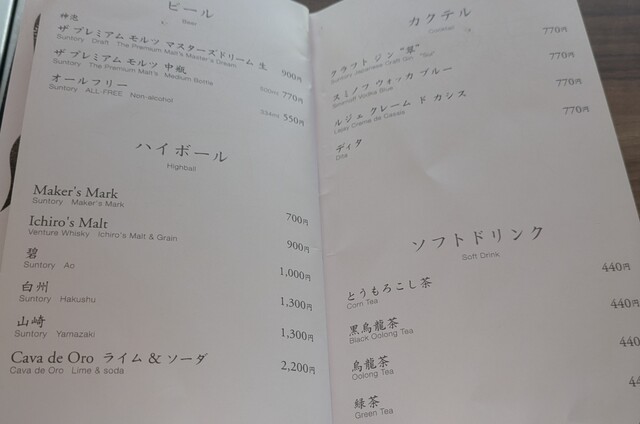 ビール
Beer
神泡
ザ プレミアム モルツ マスターズドリーム 生
Suntory Draft The Premium Malt's Master's Dream
900円
ザ プレミアム モルツ 中瓶
Suntory The Premium Malt's Medium Bottle
500ml 770円
オールフリー
Suntory ALL-FREE Non-alcohol
334ml 550円
ハイボール
Highball
Maker's Mark
Suntory Maker's Mark
700円
Ichiro's Malt
Venture Whisky Ichiro's Malt & Grain
900円
碧
Suntory Ao
1,000円
白州
Suntory Hakushu
1,300円
山崎
Suntory Yamazaki
1,300円
Cava de Oro ライム & ソーダ
Cava de Oro Lime & soda
2,200円
カクテル
Cocktail
クラフト ジン “翠”
Suntory Japanese Craft Gin "Sui"
770円
スミノフ ウォッカ ブルー
Smirnoff Vodka Blue
770円
ルジェ クレーム ド カシス
Lejay Creme de Cassis
770円
ディタ
Dita
770円
ソフトドリンク
Soft Drink
とうもろこし茶
Corn Tea
440円
黒烏龍茶
Black Oolong Tea
440円
烏龍茶
Oolong Tea
440
緑茶
Green Tea